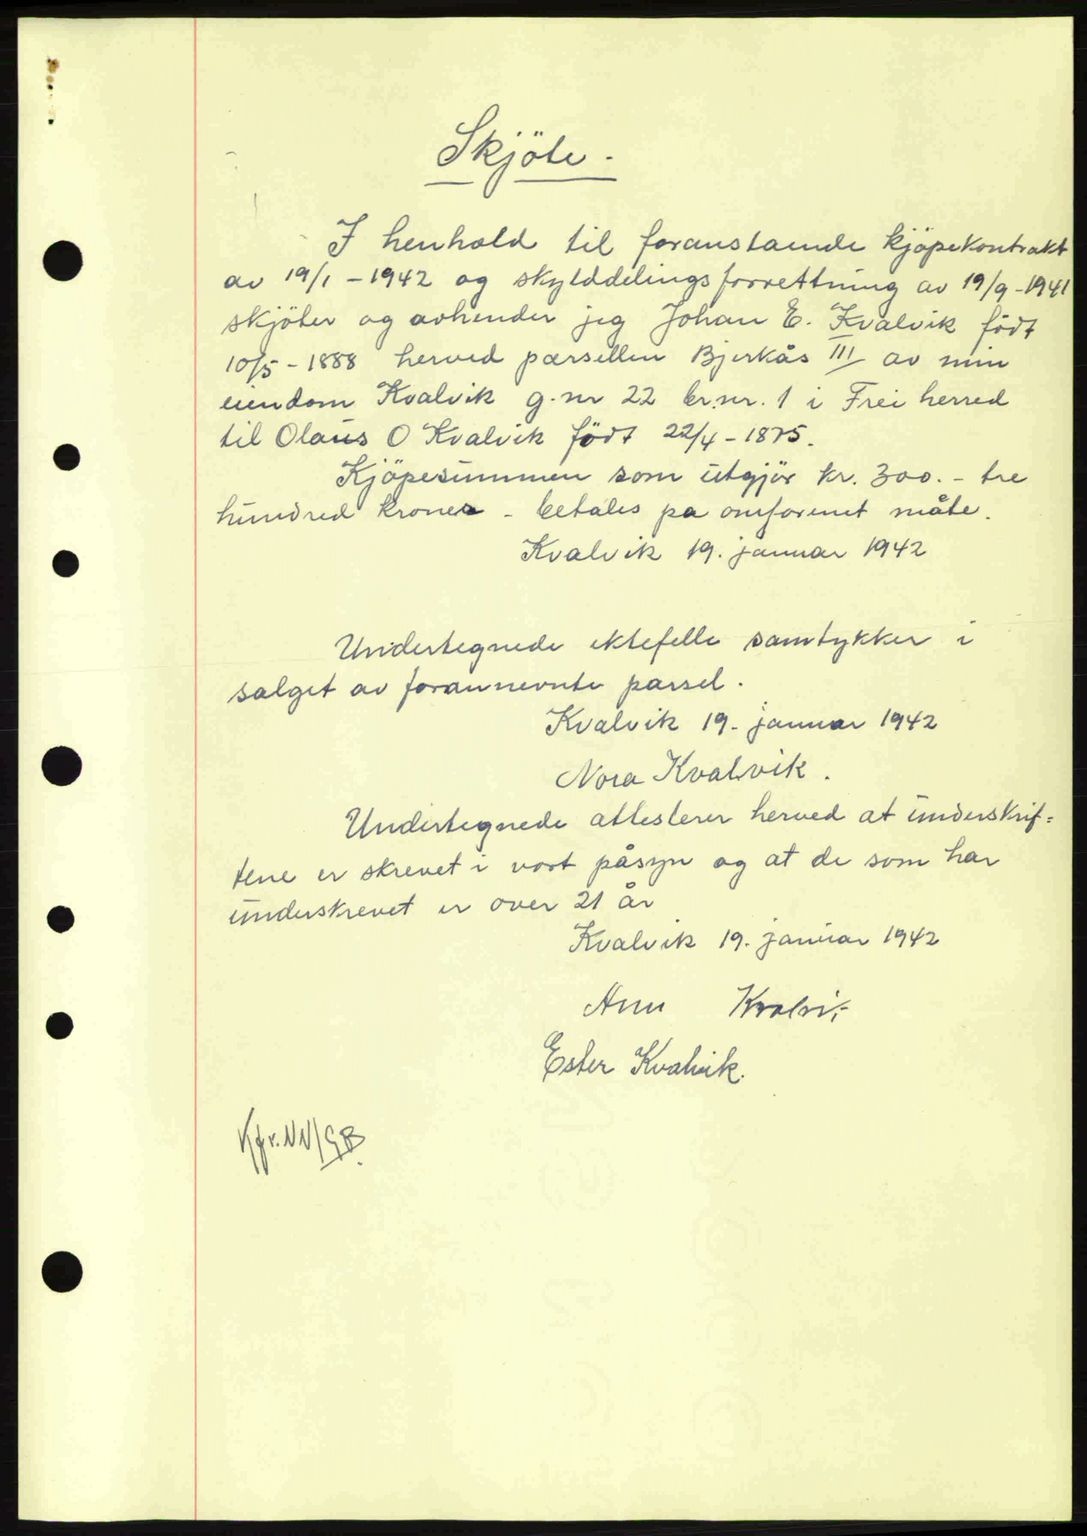 Skjöte.
I henhold til foranstaende kjöpekontrakt
av 19/1 - 1942 og skylddelingsforrettning av 19/9 - 1941
skjöter og avhender jeg Johan E. Kvalvik födt
10/5 - 1888 herved parsellen Bjerkås III av min
eiendom Kvalvik g.nr 22 br.nr. 1 i Frei herred
til Olaus O Kvalvik födt 22/4 - 1875.
Kjöpesummen som utgjör kr. 300.- tre
hundred kroner - betales pa omforenet måte.
Kvalvik 19. januar 1942
Undertegnede ektefelle samtykker i
salget av forannevnte parsel.
Kvalvik 19. januar 1942
Nora Kvalvik.
Undertegnede attesterer herved at underskrif=
tene er skrevet i vort påsyn og at de som har
underskrevet er over 21 år
Kvalvik 19. januar 1942
Kvalvik
Ester Kvalvik.
Kfr. NN/GB.